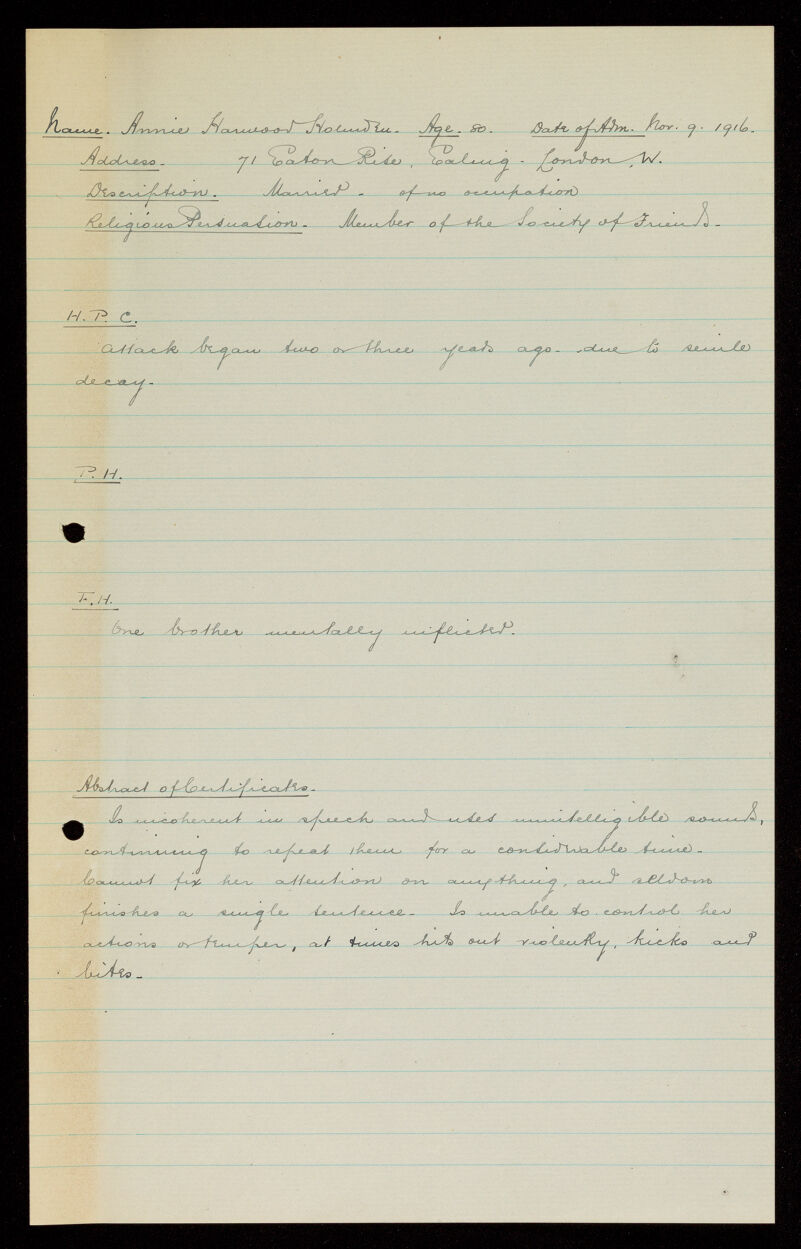 Name. Annie Harwood Holmden. Age. 80. Date of Adm. Nov. 9. 1916.
Address. 71 Eaton Rise, Ealing. London, W.
Description. Married - of no occupation
Religious Persuasion. Member of the Society of Friends.
H. P. C.
Attack began two or three years ago - due to senile
decay.
P. H.
F. H.
One brother mentally inflicted.
Abstract of Certificates.
Is incoherent in speech and utes unintelligible sounds,
continuing to repeat them for a considerable time.
Cannot fix her attention on anything, and seldom
finishes a single sentence. Is unable to control her
actions or temper, at times hits out violently, kicks and
bites.